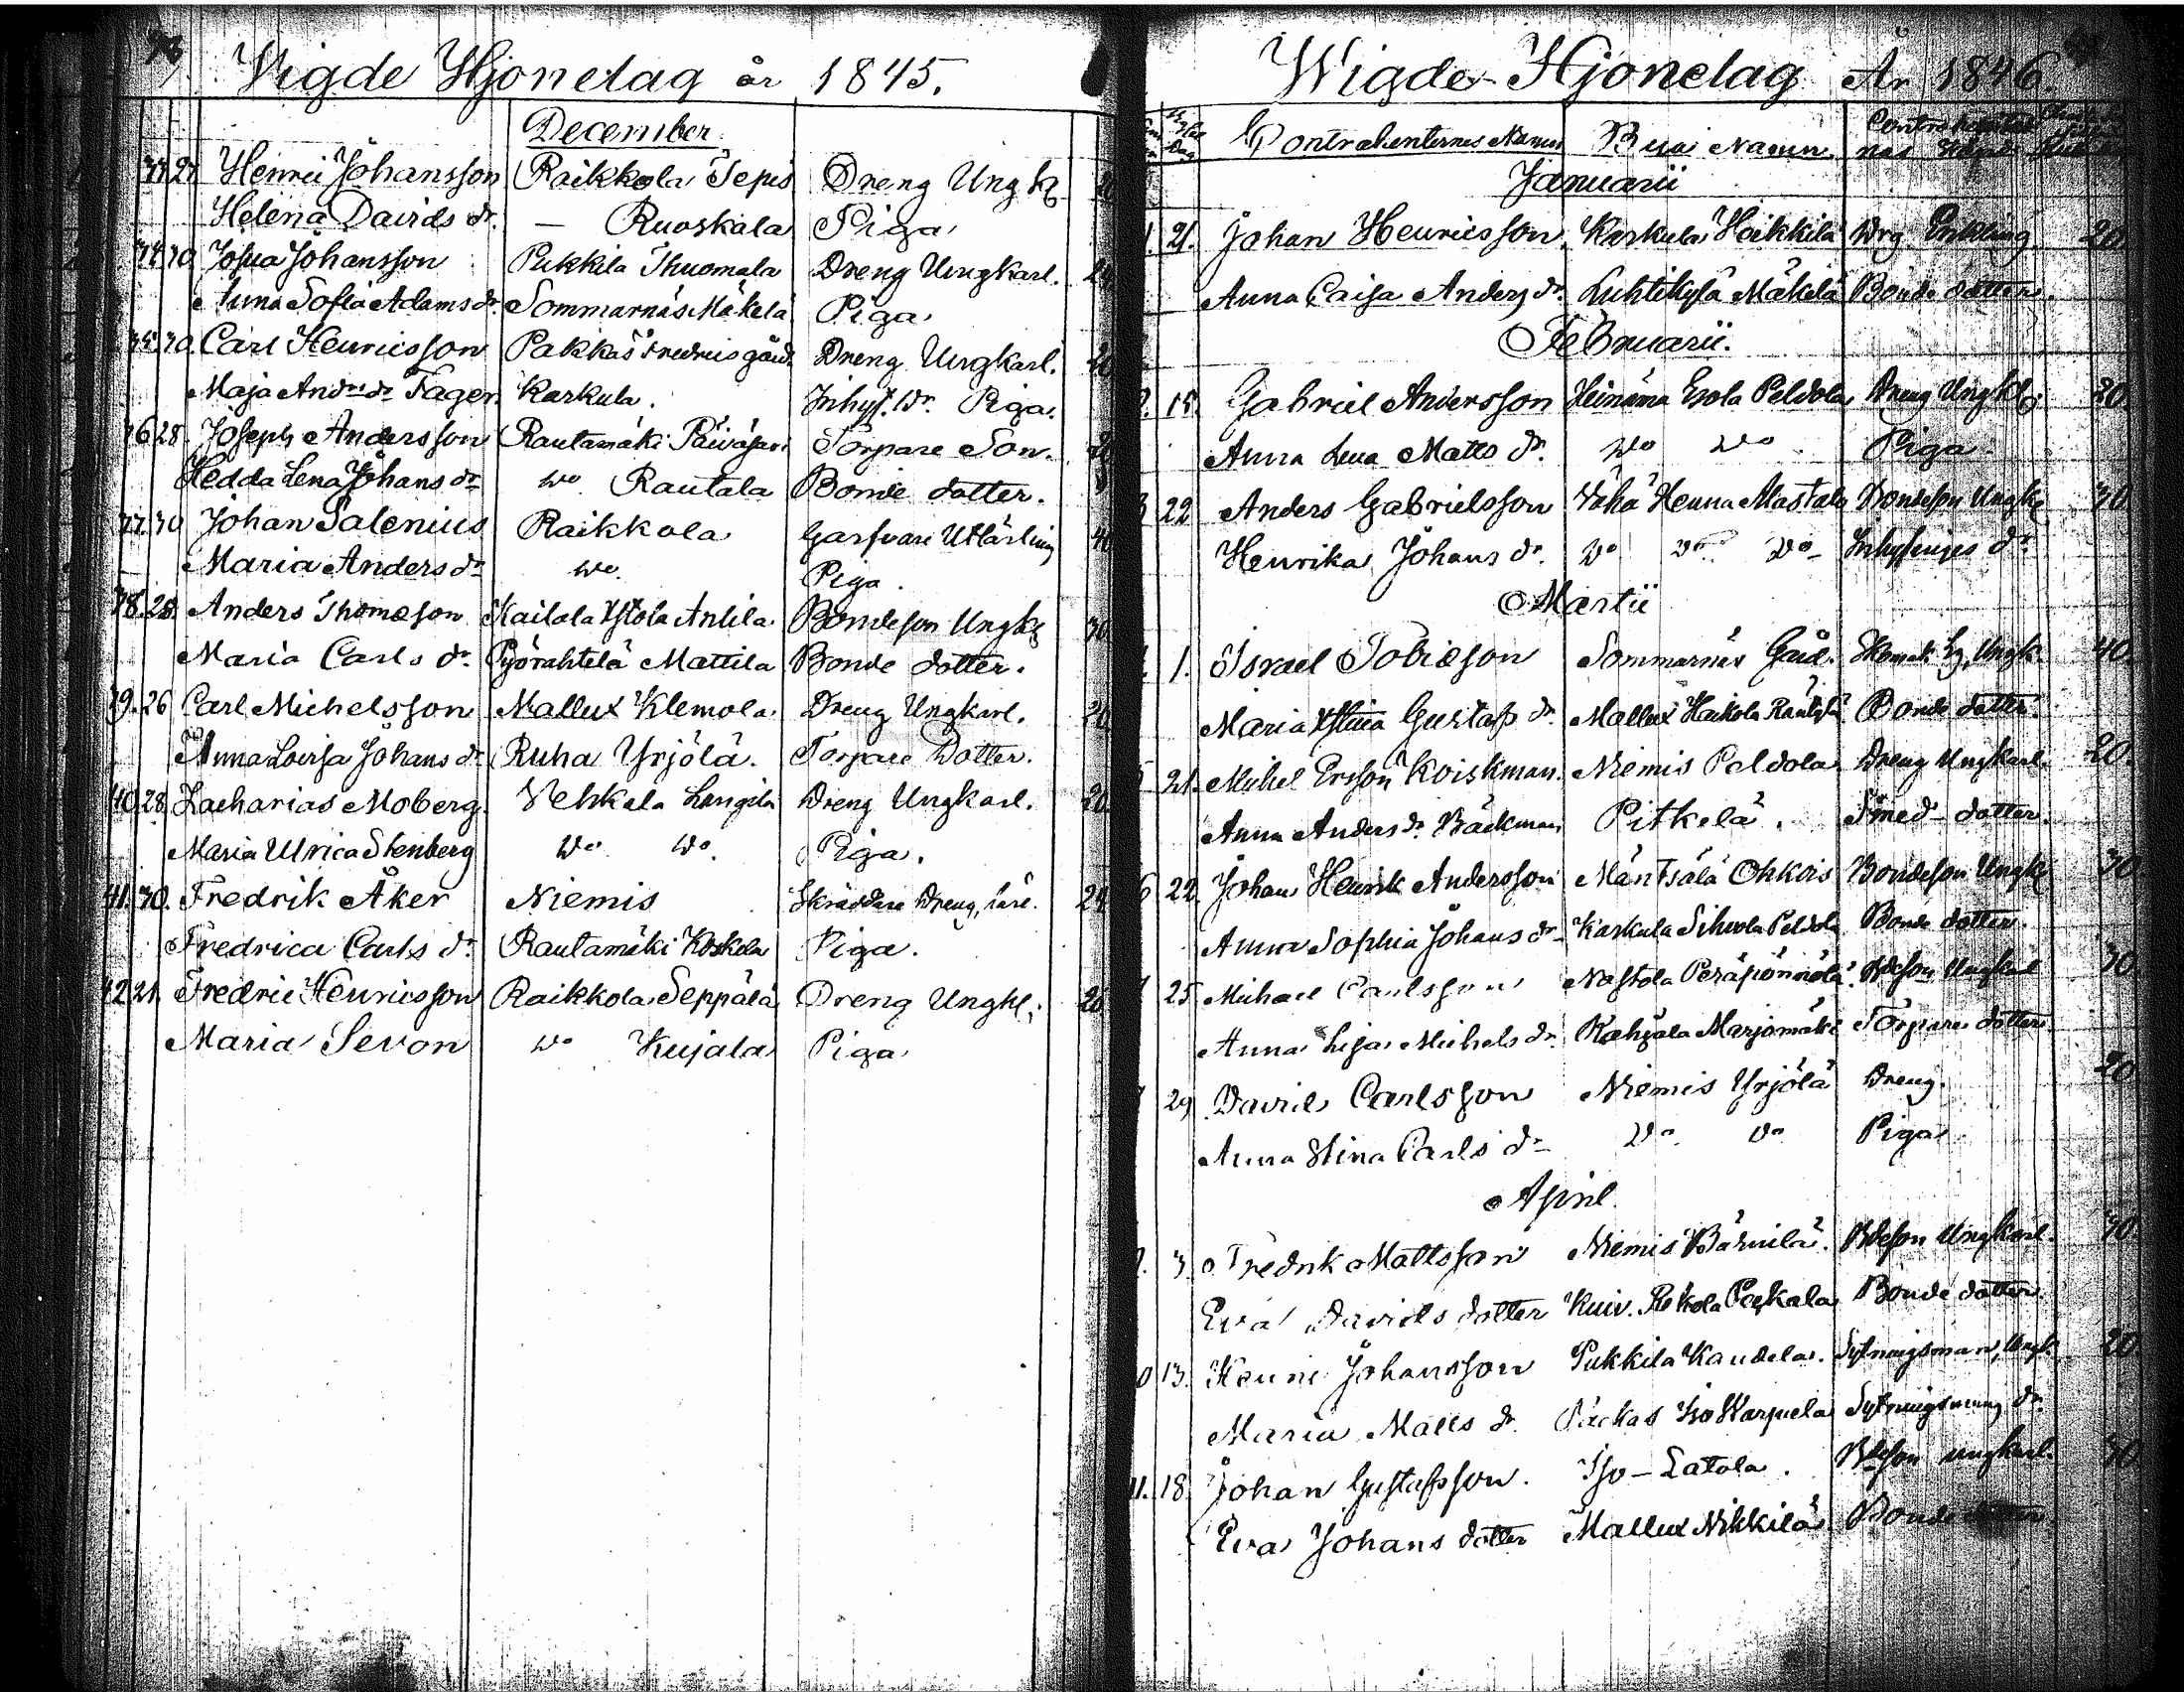 Vigde Hjonelag år 1845.
December
33 27 Henric Johansson Raikkola Sepis Dreng Ungk
Helena Davids dr. — Ruoskala Piga
34 30 Josua Johansson Pukkila Thuomala Dreng Ungkarl. 20
Anna Sofia Adams dr. Sommarnäs Mäkelä Piga
35. 30. Carl Henricsson Pakkas Fredricsgård Dreng Ungkarl. 20
Maja Andrs dr Fager. Karkula. Inhys. dr. Piga.
36 28. Joseph Andersson Rautamäki Päiväsari Torpare Son.
Hedda Lena Johans dr do Rautala Bonde dotter.
37. 30 Johan Salenius Raikkola Garfvare Utlärling 40
Maria Anders dr do. Piga.
38. 28. Anders Thomeson Kailola Ystola Anttila Bondeson Ungk 30
Maria Carls dr. Pyörähtelä Mattila Bonde dotter.
39. 26 Carl Michelsson Mallux Klemola. Dreng Ungkarl. 20
Anna Lovisa Johans dr Ruha Yrjölä. Torpare Dotter.
40. 28. Zacharias Moberg. Vehkala Langila Dreng Ungkarl. 20
Maria Ulrica Stenberg do do. Piga.
41. 30. Fredrik Åker Niemis Skräddare Dreng, 24
Fredrica Carls dr. Rautamäki Koskela Piga.
42. 21. Fredric Henricsson Raikkola Seppälä Dreng Ungkl. 20
Maria Sevon do Kujala Piga
Wigde Hjonelag År 1846.
Contrahenternes Namn Byai Namn.
Januarii
1. 21. Johan Henricsson Karkula Heikkilä Drg Enkling 20
Anna Caisa Anders dr. Luhtikylä Mäkelä Bonde dotter.
Februarii.
2. 15. Gabriel Andersson Heinäma Esola Peldola Dreng Ungkl. 20.
Anna Lena Matts dr. do do Piga
3 22 Anders Gabrielsson Vähä Henna Mastala Bondeson Ungk 30
Henrika Johans dr. do do do Inhysinges dr.
Martii
1. Israel Tobieson Sommarnäs Gård. Ungk. 40.
Maria Stina Gustafs dr. Mallux Haikola Bonde dotter.
5 21. Michel Ersson Koiskman. Niemis Peldola Dreng Ungkarl. 20.
Anna Anders dr. Bäckman Pitkelä. Smed dotter.
6 22. Johan Henrik Andersson Mäntsälä Ohkois Bondeson Ungk 30
Anna Sophia Johans dr Karkula Sihvola Peldola Bonde dotter.
7 25 Michael Carlsson Nastola Bdeson Ungkarl 30
Anna Lisa Michels dr. Kahzala Marjamäki Torpare dotter
29 David Carlsson Niemis Yrjölä Dreng. 20
Anna Stina Carls dr do do Piga
April
9. 3. Fredrik Mattsson Niemis Bärnilä. Bdeson Ungkarl. 30.
Eva Davids dotter Kuiv. Rekola Peskala Bonde dotter.
10 13. Henric Johansson Pukkila Kandela. Sytningsman, Ungk. 20
Maria Matts dr. Packas Iso Karpela Sytningsmans dr.
11. 18. Johan Gustafsson. Iso-Latola. Bdeson ungkarl. 30
Eva Johans dotter Mallux Nikkilä. Bonde dotter